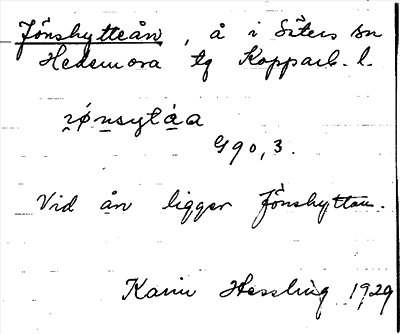 Jönshytteån, å i Säters sn
Hedemora tg Kopparb. l.
G90,3.
Vid ån ligger Jönshyttan.
Karin Hessling 1929